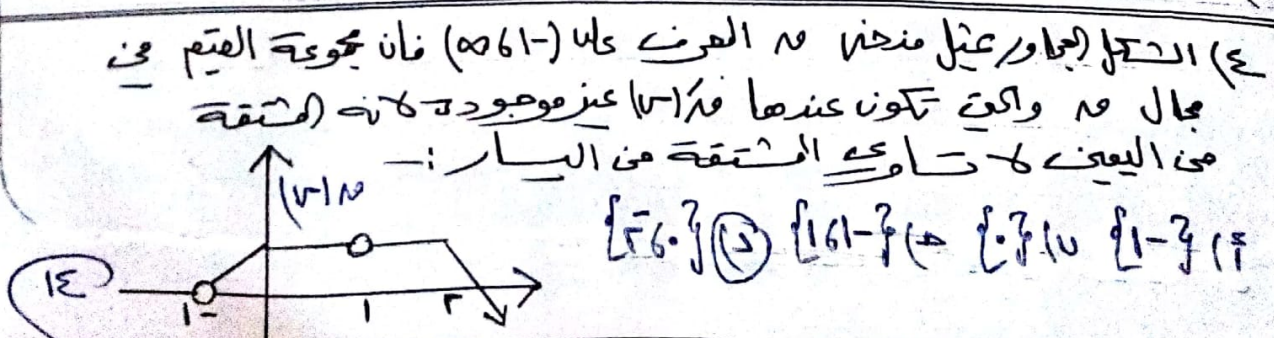 ٤) الشكل المجاور يمثل منحنى ق المعرف على (-١،∞) فان مجموعة القيم في
مجال ق والتي تكون عندها قَ(س) غير موجودة لانه المشتقة
من اليمين لا تساوي المشتقة من اليسار :-
أ) {-١} ب) {٠} ج) {-١،١} د) {٠،٢}
ق(س)
-١ ١ ٢
١٤